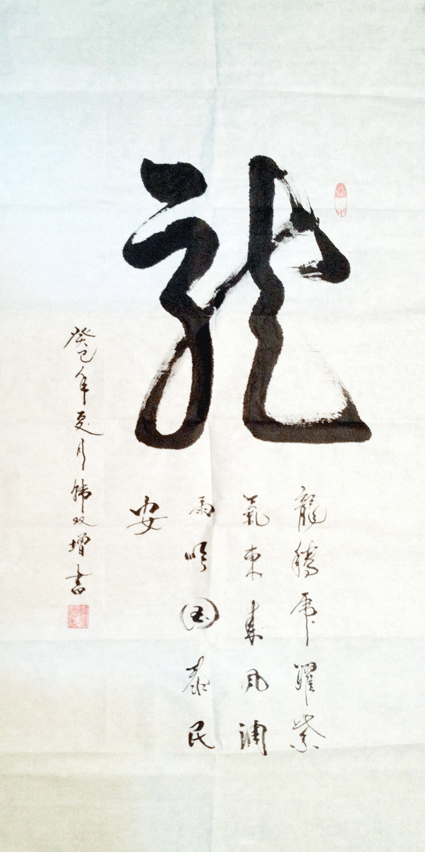 龍
龍騰虎躍紫
氣東來風調
雨順國泰民
安
癸巳年夏月韩双增書